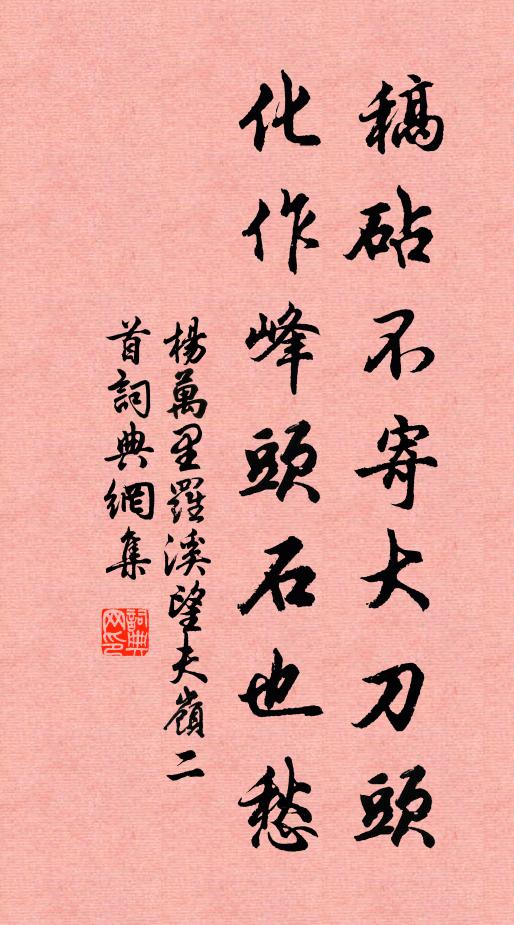 稿砧不寄大刀頭
化作峰頭石也愁
楊萬里羅溪望夫嶺二
首詞典網集
詞典
网印